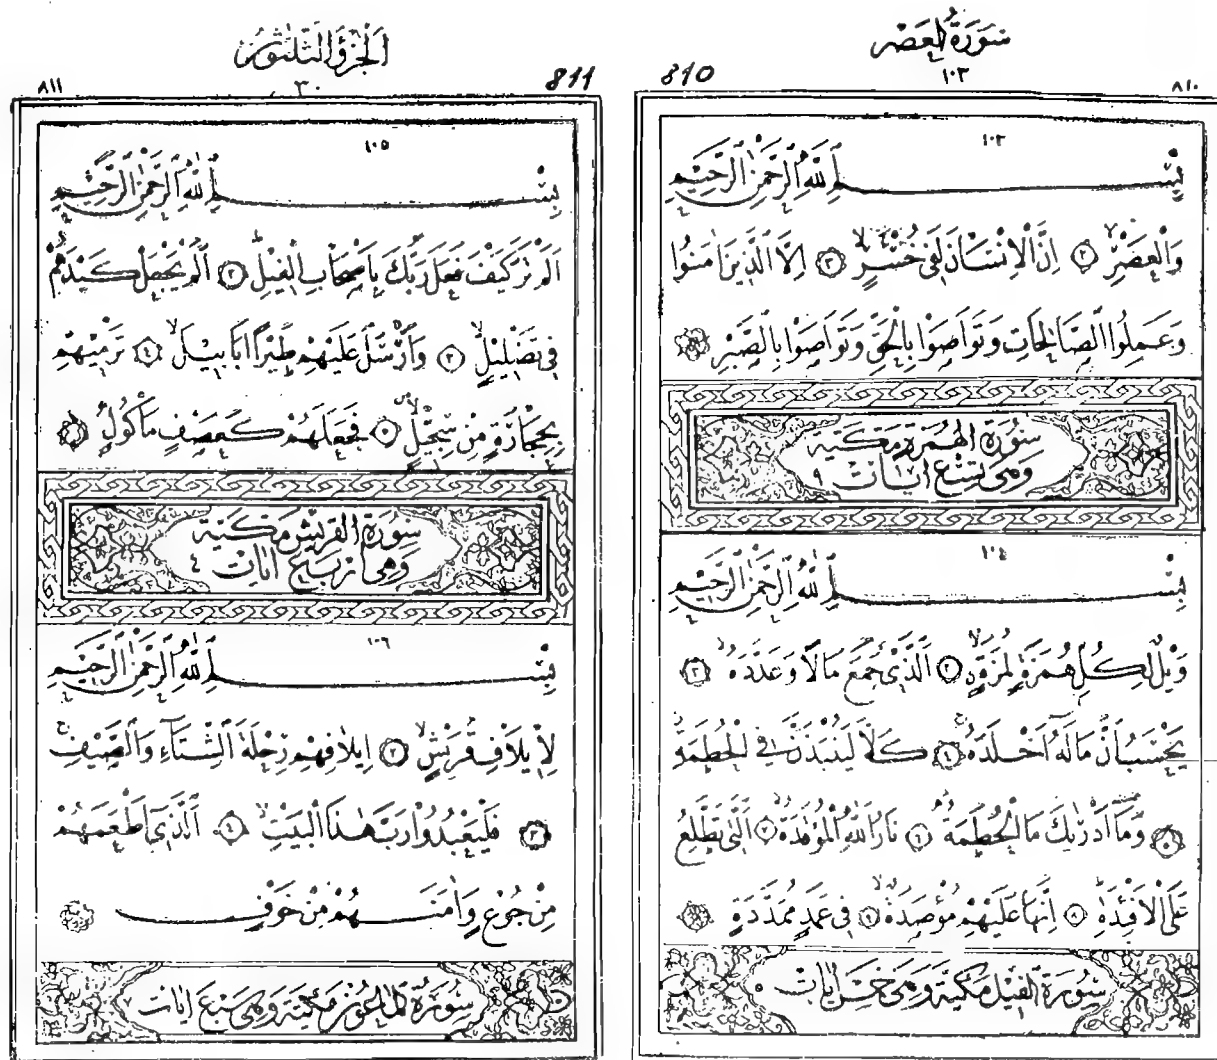 سورة العصر
810
١٠٣
٨١٠
١٠٣
بِسْمِ اللّٰهِ الرَّحْمٰنِ الرَّحِيمِ
وَالْعَصْرِۙ ٢ اِنَّ الْاِنْسَانَ لَفِي خُسْرٍۙ ٣ اِلَّا الَّذِينَ اٰمَنُوا
وَعَمِلُوا الصَّالِحَاتِ وَتَوَاصَوْا بِالْحَقِّ وَتَوَاصَوْا بِالصَّبْرِ
سُورَةُ الْهُمَزَةِ مَكِّيَّةٌ
وَهِيَ تِسْعُ اٰيَاتٍ ٩
١٠٤
بِسْمِ اللّٰهِ الرَّحْمٰنِ الرَّحِيمِ
وَيْلٌ لِكُلِّ هُمَزَةٍ لُمَزَةٍۙ ٢ اَلَّذِي جَمَعَ مَالًا وَعَدَّدَهُۙ ٣
يَحْسَبُ اَنَّ مَالَهُٓ اَخْلَدَهُۚ ٤ كَلَّا لَيُنْبَذَنَّ فِي الْحُطَمَةِۘ
٥ وَمَٓا اَدْرٰيكَ مَا الْحُطَمَةُۜ ٦ نَارُ اللّٰهِ الْمُوقَدَةُۙ ٧ اَلَّتِي تَطَّلِعُ
عَلَى الْاَفْـِٔدَةِۜ ٨ اِنَّهَا عَلَيْهِمْ مُؤْصَدَةٌۙ ٩ فِي عَمَدٍ مُمَدَّدَةٍ
سُورَةُ الْفِيلِ مَكِّيَّةٌ وَهِيَ خَمْسُ اٰيَاتٍ ٥
اَلْجُزْؤُ الثَّلٰثُونَ
٨١١
٣٠
811
١٠٥
بِسْمِ اللّٰهِ الرَّحْمٰنِ الرَّحِيمِ
اَلَمْ تَرَ كَيْفَ فَعَلَ رَبُّكَ بِاَصْحَابِ الْفِيلِۜ ٢ اَلَمْ يَجْعَلْ كَيْدَهُمْ
فِي تَضْلِيلٍۙ ٣ وَاَرْسَلَ عَلَيْهِمْ طَيْرًا اَبَابِيلَۙ ٤ تَرْمِيهِمْ
بِحِجَارَةٍ مِنْ سِجِّيلٍۙ ٥ فَجَعَلَهُمْ كَعَصْفٍ مَأْكُولٍ
سُورَةُ الْقُرَيْشِ مَكِّيَّةٌ
وَهِيَ اَرْبَعُ اٰيَاتٍ ٤
١٠٦
بِسْمِ اللّٰهِ الرَّحْمٰنِ الرَّحِيمِ
لِاِيلَافِ قُرَيْشٍۙ ٢ اِيلَافِهِمْ رِحْلَةَ الشِّتَٓاءِ وَالصَّيْفِۚ
٣ فَلْيَعْبُدُوا رَبَّ هٰذَا الْبَيْتِۙ ٤ اَلَّذِٓي اَطْعَمَهُمْ
مِنْ جُوعٍ وَاٰمَنَهُمْ مِنْ خَوْفٍ
سُورَةُ الْمَاعُونِ مَكِّيَّةٌ وَهِيَ سَبْعُ اٰيَاتٍ ٧